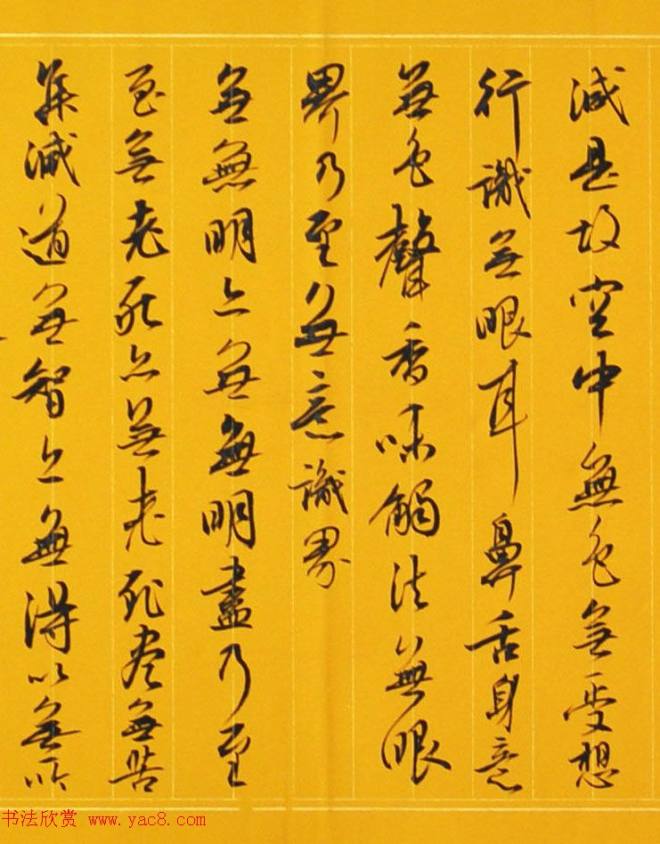 減是故空中無色無受想
行識無眼耳鼻舌身意
無色聲香味觸法無眼
界乃至無意識界
無無明亦無無明盡乃至
至無老死亦無老死尽無苦
集滅道無智亦無得以無所
书法欣赏 www.yac8.com